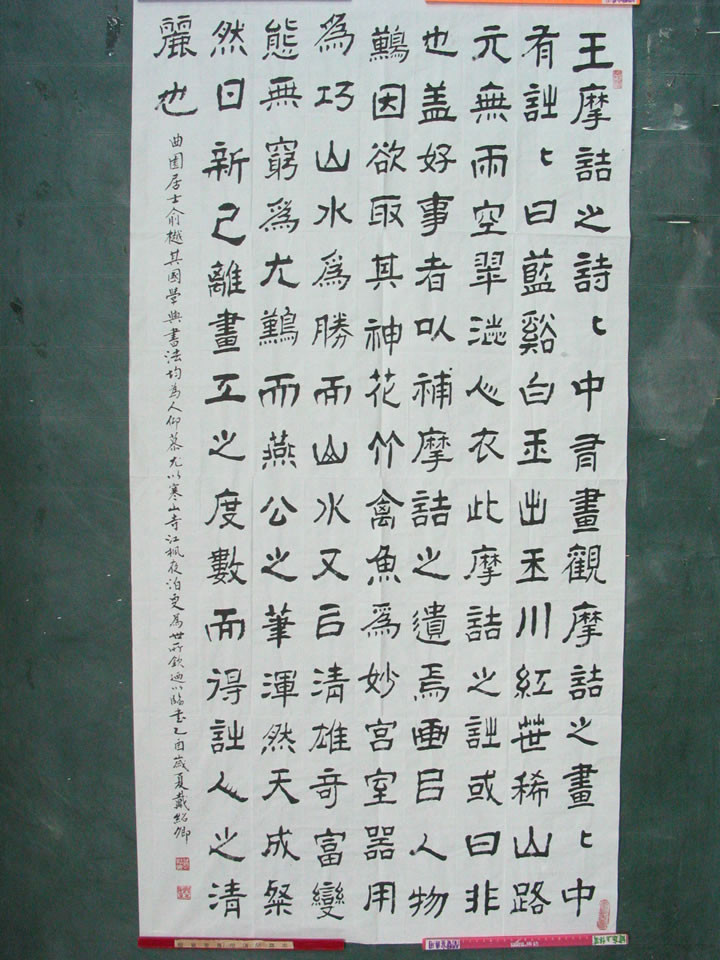 王摩詰之詩〻中有畫觀摩詰之畫〻中
有詩〻曰藍谿白玉出玉川紅葉稀山路
元無雨空翠溼人衣此摩詰之詩或曰非
也蓋好事者以補摩詰之遺焉画㠯人物
難因欲取其神花竹禽魚爲妙宮室器用
爲巧山水爲勝而山水又㠯清雄奇富變
態無窮爲尤難而燕公之筆渾然天成粲
然日新已離畫工之度數而得詩人之清
麗也
曲園居士俞樾其國學與書法均為人仰慕尤以寒山寺江楓夜泊更為世所欽迺以臨書乙酉歲夏戴紹卿